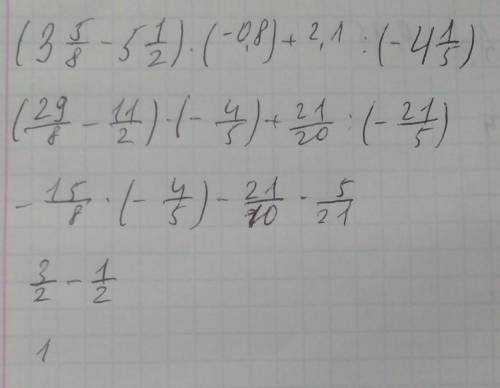 (3 5/8 - 5 1/2) · (-0,8) + 2,1 : (-4 1/5)
(29/8 - 11/2) · (- 4/5) + 21/20 : (- 21/5)
- 15/8 · (- 4/5) - 21/10 · 5/21
3/2 - 1/2
1